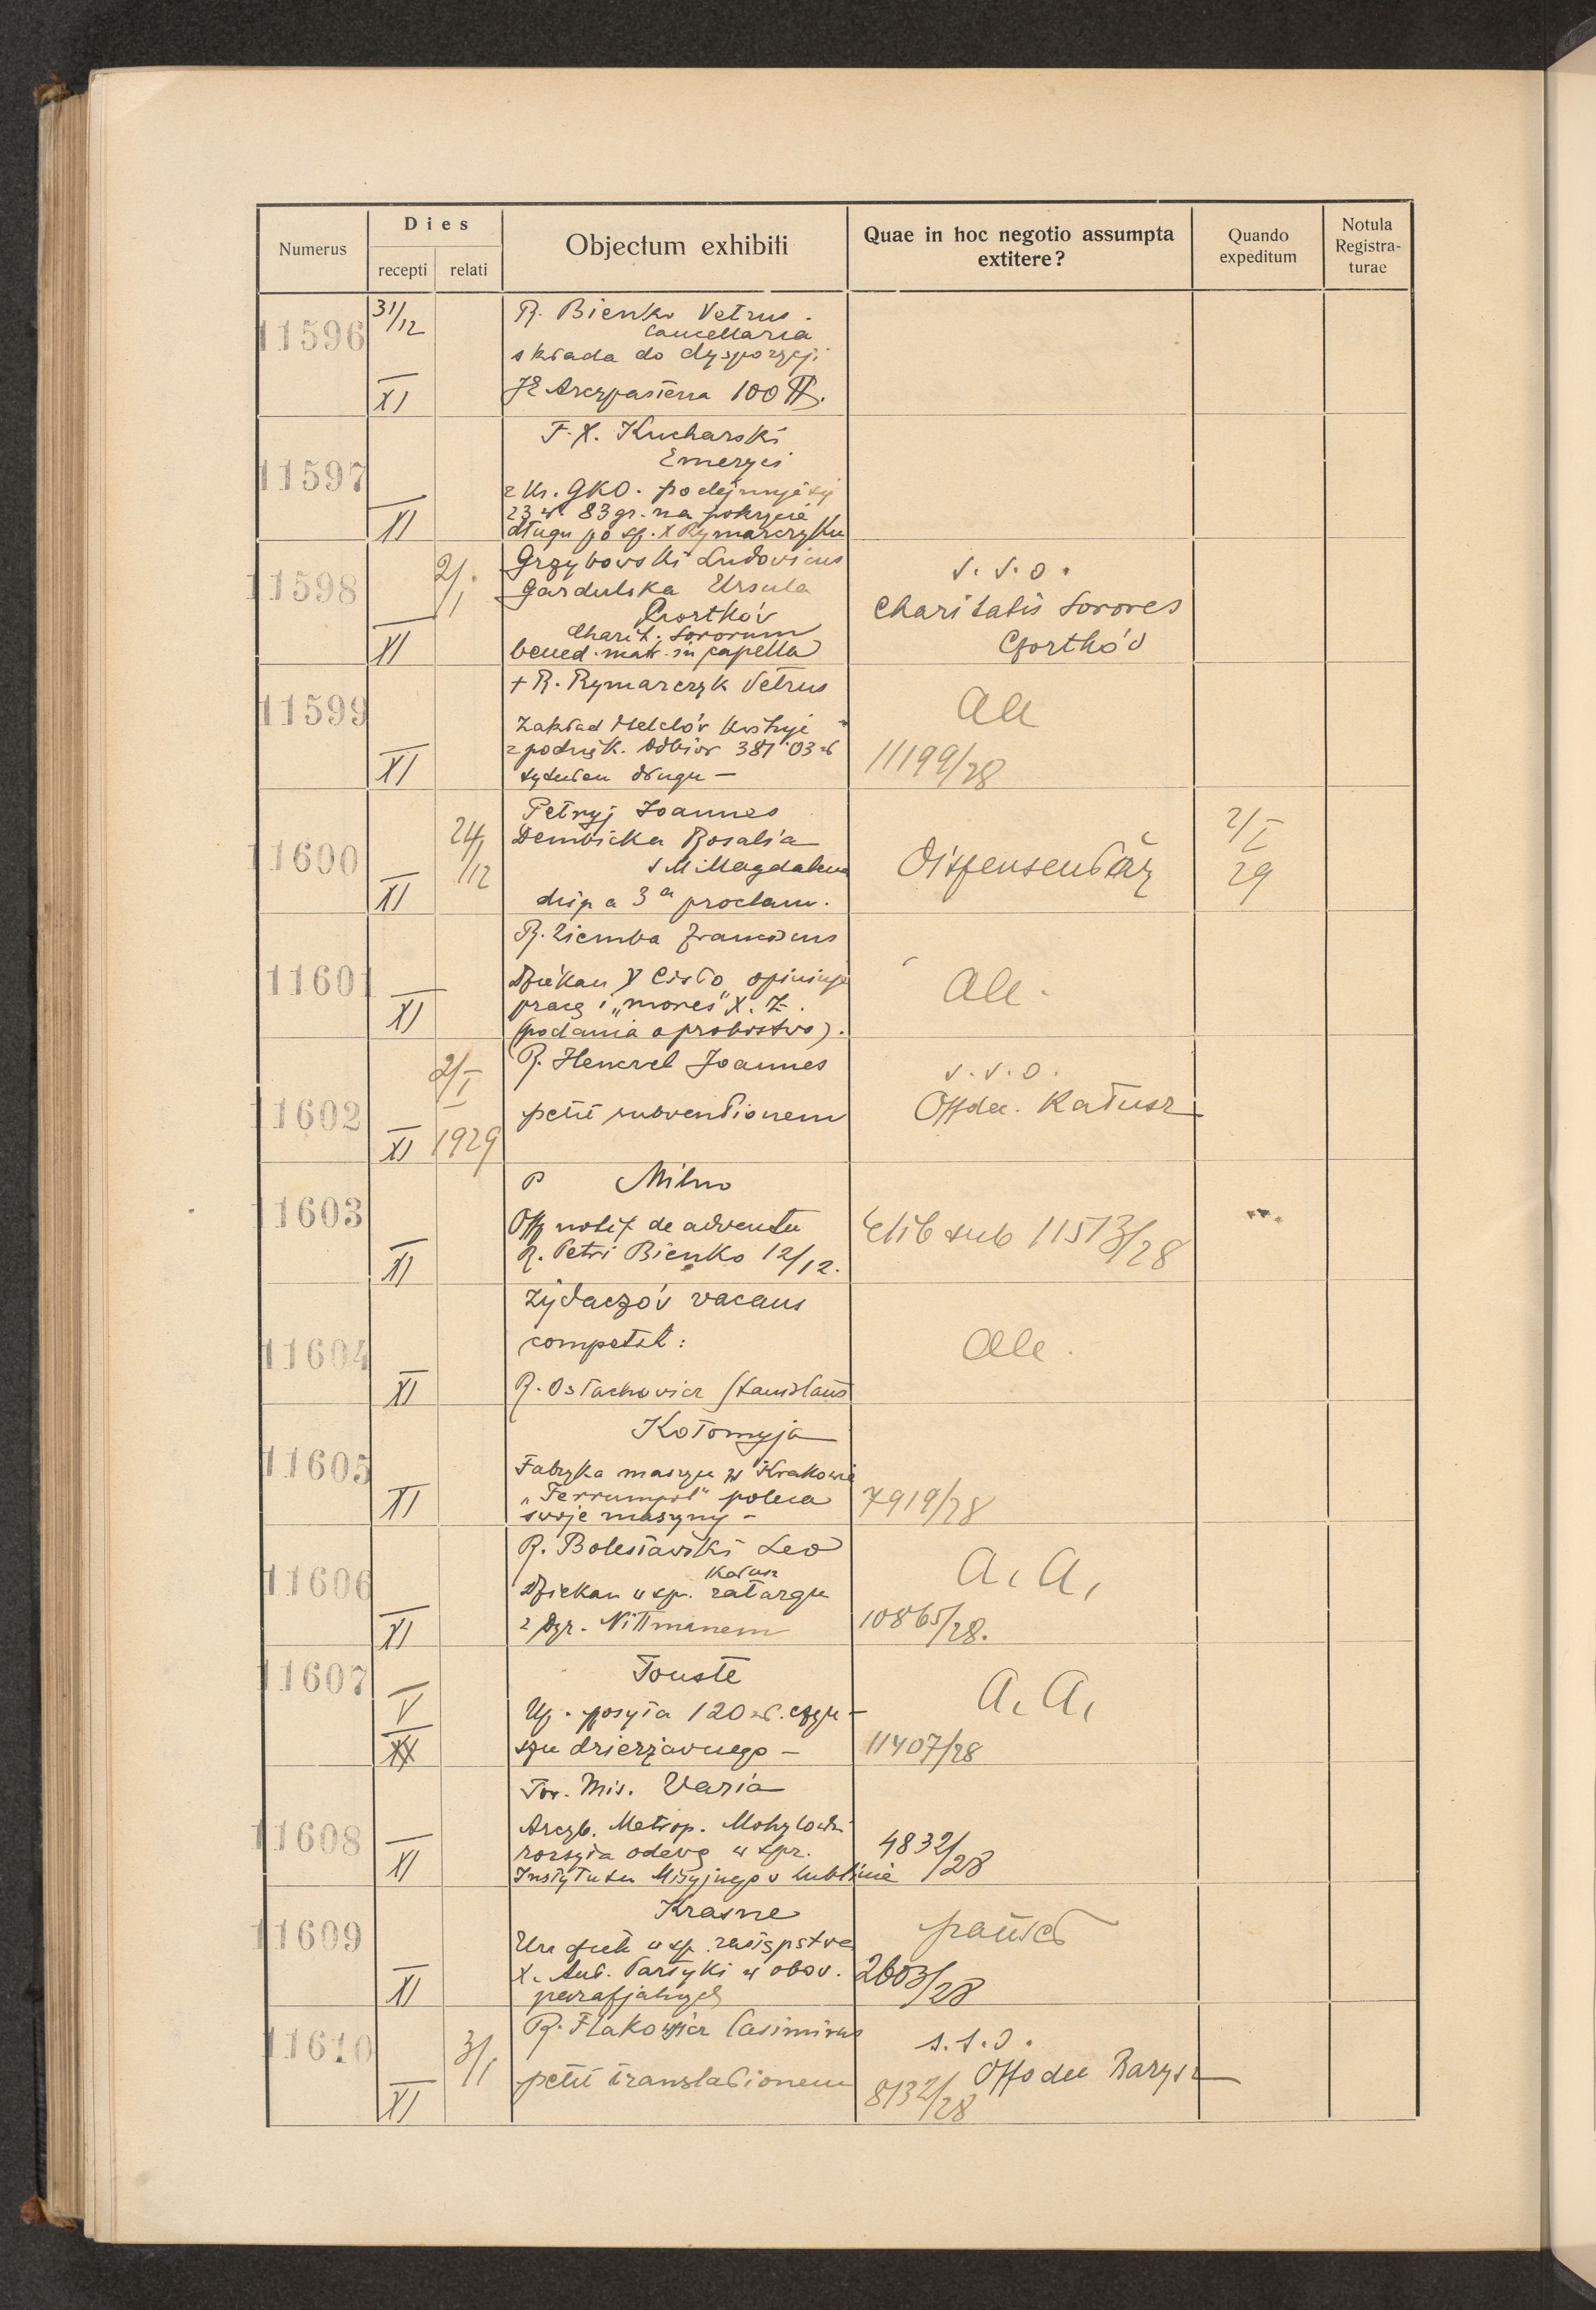 Numerus
Dies
recepti
relati
Objectum exhibiti
Quae in hoc negotio assumpta
extitere?
Quando
expeditum
Notula
Registra-
turae
11596
31/12
XI
R. Bieńko Petrus.
Cancellaria
składa do dyspozycji
JE Arcypasterza 100
11597
XI
F. X. Kucharski
Emeryci
z Ks. GKO. podejmuje się
23 zł. 83 gr. na pokrycie
długu po śp. X Rymarczyku
11598
2/1
XI
Grzybowski Ludovicus
Gardulska Ursula
Czortków
Charit. Sororum
bened. matr. in capella
s. s. o.
Charitatis Sorores
Czortków
11599
XI
+ R. Rymarczyk Petrus
Zakład
z podzięk. odbiór 381.03 zł
tytułem długu —
aa
11199/28
11600
24/12
XI
Petryj Joannes
Dembicka Rosalia
S M Magdalena
disp a 3a proclam.
Dispensentur
2/I
29
11601
XI
R. Ziemba Franciscus
Dziekan X Cisło opiniuje
pracę i „mores" X. Z.
(podania o probostwo).
aa.
11602
2/I
1929
XI
R. Henzel Joannes
petit subventionem
s. s. o.
Offdec. Kałusz
11603
XI
P Milno
Off notif de adventu
R. Petri Bieńko 12/12.
sub 11573/28
11604
XI
Żydaczów vacans
competit:
R. Ostachowicz Stanislaus
aa.
11605
XI
Kołomyja
Fabryka maszyn w Krakowie
poleca
swoje maszyny —
7919/28
11606
XI
R. Bolesławski Leo
Kałusz
Dziekan w sp. zatargu
z Dyr. Nittmanem
a. a.
10865/28.
11607
V
XX
Touste
Up. posyła 120 zł. czyn-
szu dzierżawnego —
a. a.
11407/28
11608
XI
Tow. Mis. Varia
Arcyb. Metrop. Mohylowski
rozsyła odezwę w spr.
Instytutu Misyjnego w Lublinie
4832/28
11609
XI
Krasne
w sp. zastępstwa
X. Ant. w obow.
parafjalnych
2603/28
11610
3/1
XI
R. Casimirus
petit translationem
s. s. o.
Offo dec Barysz
8132/28